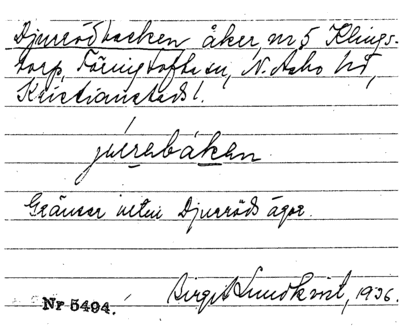 Djurrödbacken åker, nr 5 Klings-
torp, Förnigtofta sn, N. Asbo hd,
Kristianstads l.
jurabákan
Gränsar intill Djurröds ägor.
Birgit Lundkvist, 1936.
Nr 5494.